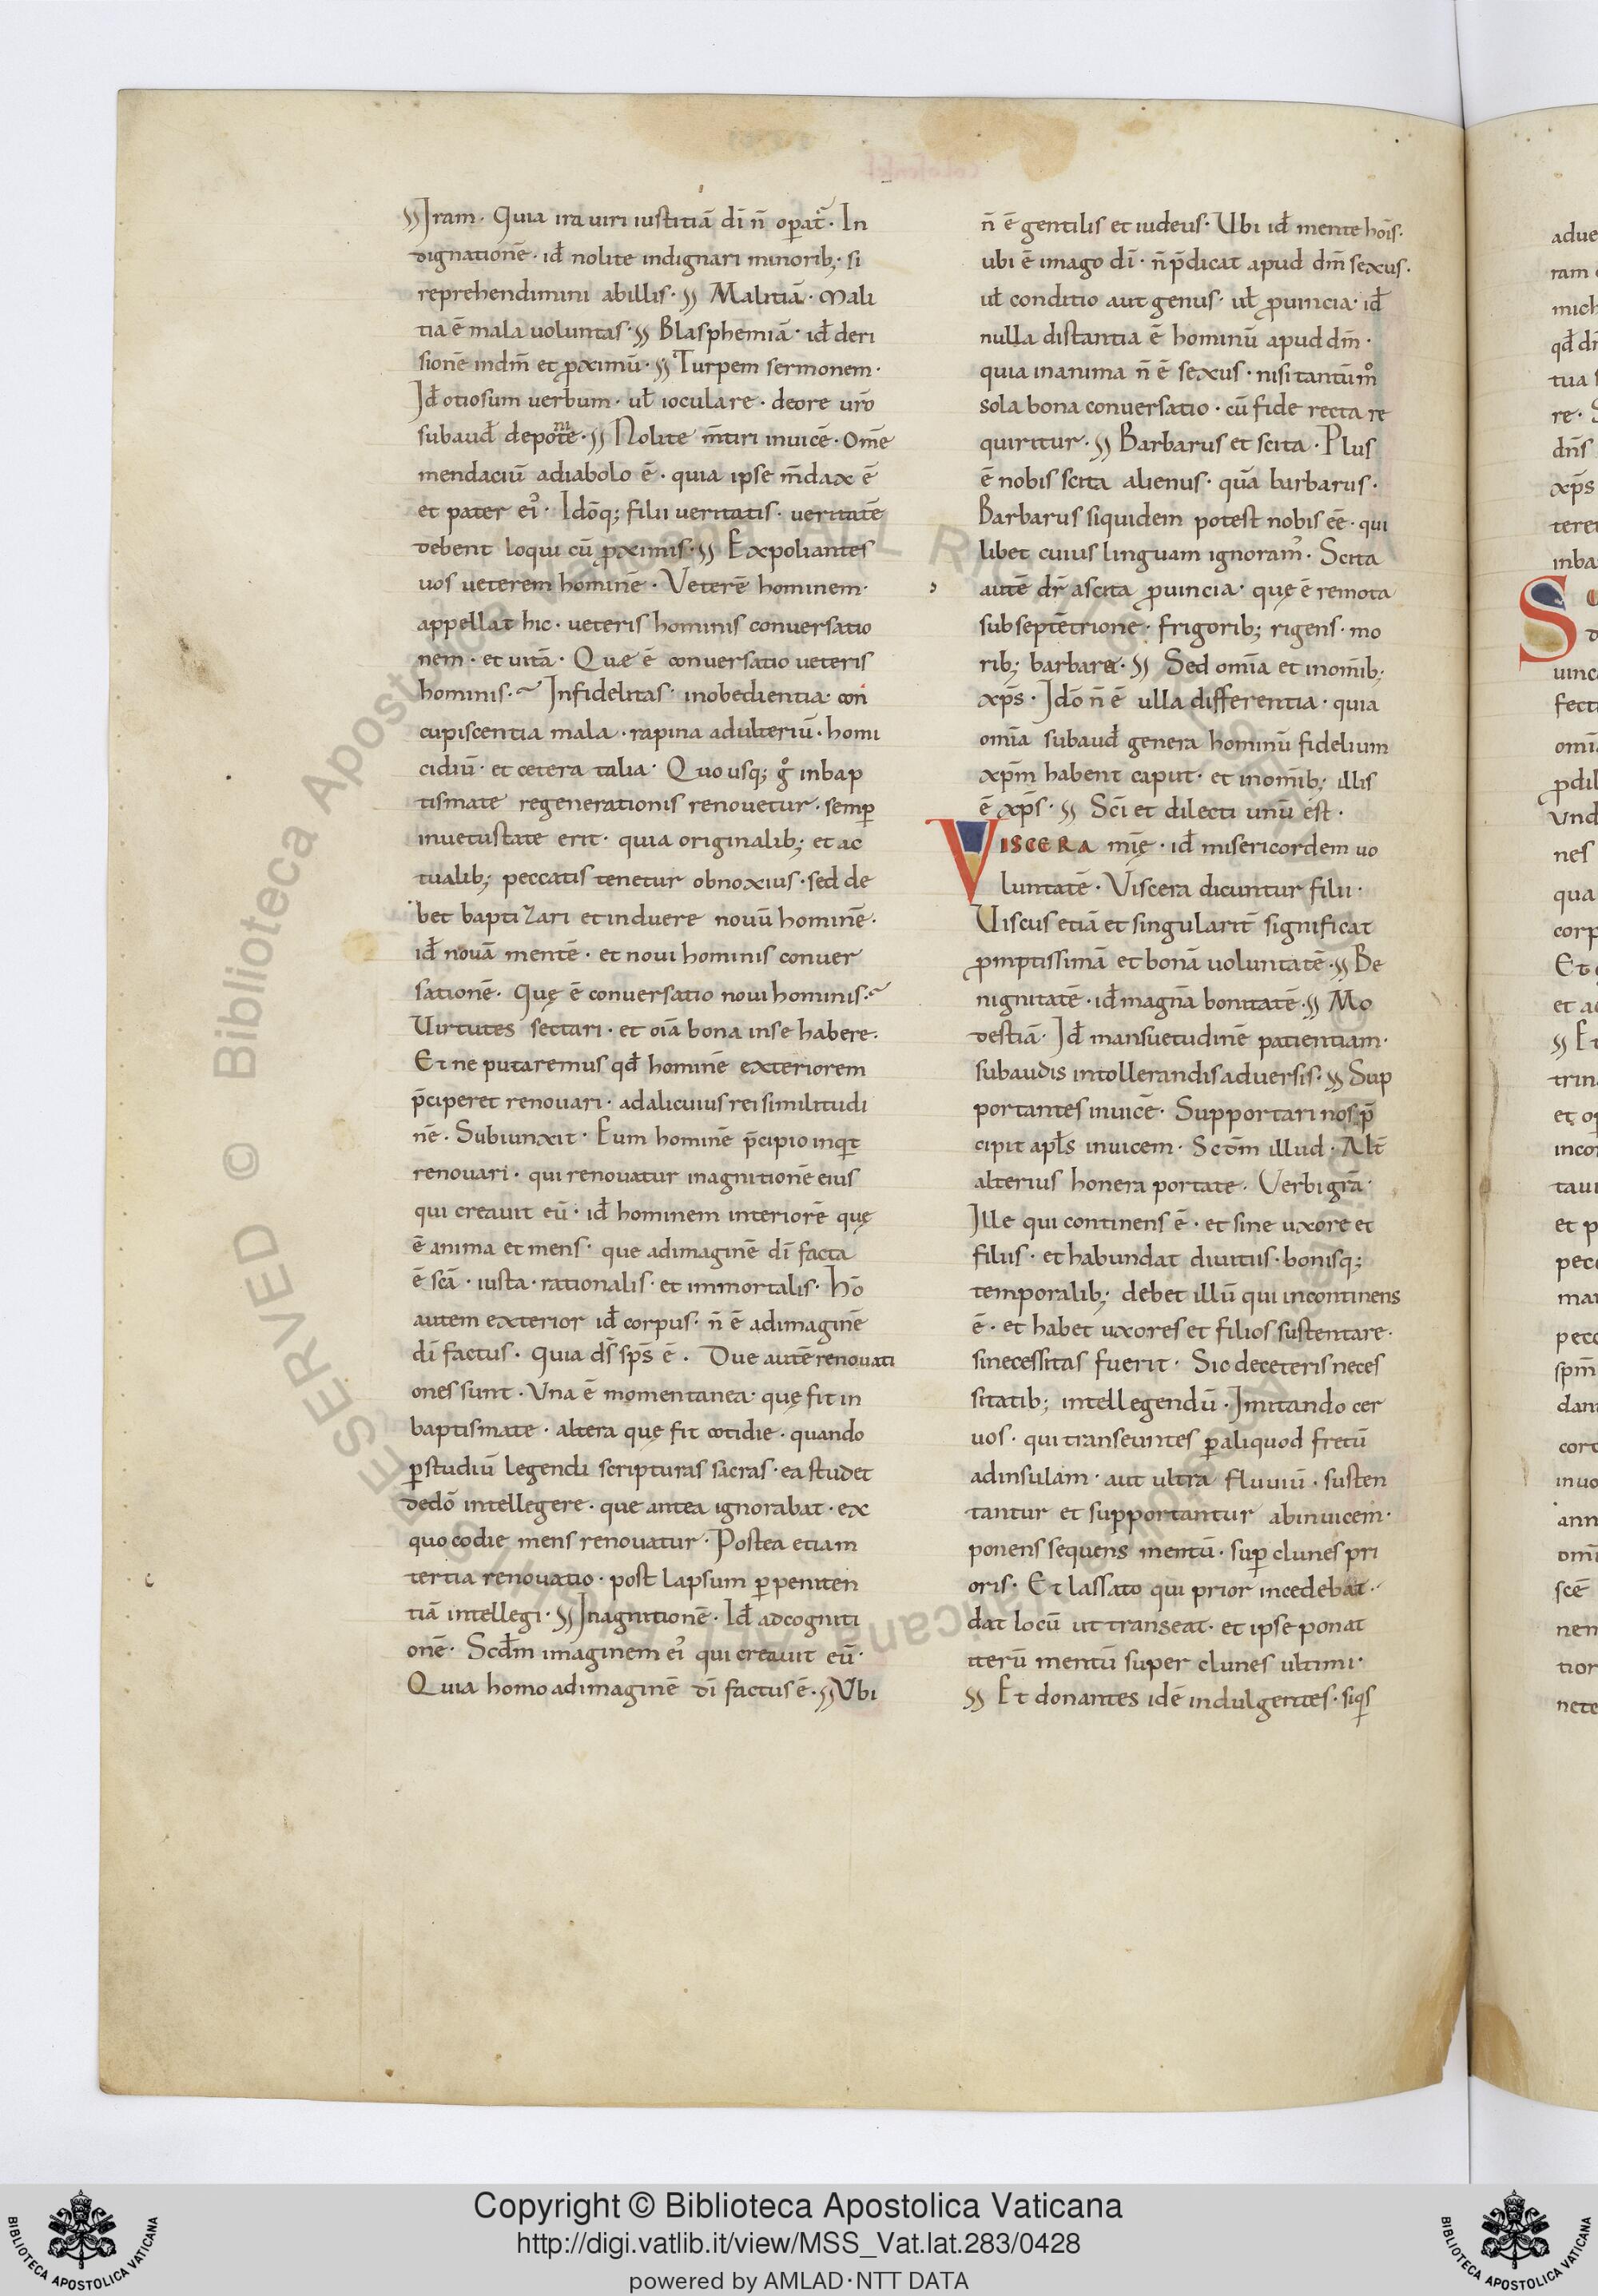 §§ Iram · Quia ira uiri iustitiā dī n̄ oꝑat᷑ · In
dignationē · id̄ nolite indignari minorib; · si
reprehendimini abillis · §§ Malitiā · Mali
tia ē mala uoluntas · §§ Blasphemiā · id̄ deri
sionē indm̄ et ꝓximū · §§ Turpem sermonem ·
Id̄ otiosum uerbum · ul̄ ioculare · deore uro᷑
subaud̄ deponite · §§ Nolite m̄tiri inuicē · Om̄e
mendaciū adiabolo ē · quia ipse m̄dax ē
et pater ei᾽ · Idōq; filii ueritatis · ueritatē
debent loqui cū ꝓximis · §§ Expoliantes
uos ueterem hominē · Veterē hominem ·
appellat hic · ueteris hominis conuersatio
nem · et uitā · Quæ ē conuersatio ueteris
hominis · ~ Infidelitas · inobedientia · con
cupiscentia mala · rapina adulteriū · homi
cidiū · et cetera talia · Quousq; gͦ inbap
tismate regenerationis renouetur · semꝑ
inuetustate erit · quia originalib; et ac
tualib; peccatis tenetur obnoxius · sed de
bet baptizari et induere nouū hominē ·
id̄ nouā mentē · et noui hominis conuer
sationē · Quę ē conuersatio noui hominis · ~
Uirtutes sectari · et oīa bona inse habere ·
Et ne putaremus qd̄ hominē exteriorem
p̄ciperet renouari · adalicuius rei similitudi
nē · Subiunxit · Eum hominē p̄cipio inqt
renouari · qui renouatur inagnitionē eius
qui creauit eū · id̄ hominem interiorē quę
ē anima et mens · que adimaginē dī facta
ē scā · iusta · rationalis · et immortalis · Hō
autem exterior id̄ corpus · n̄ ē adimaginē
dī factus · Quia ds̄ sps̄ ē · Due autē renouati
ones sunt · Vna ē momentanea · quę fit in
baptismate · altera quę fit cotidie · quando
ꝑstudiū legendi scripturas sacras · ea studet
dedō intellegere · que antea ignorabat · ex
quo codie mens renouatur · Postea etiam
tertia renouatio · post lapsum ꝑpeniten
tiā intellegi · §§ Inagnitionē · Id̄ adcogniti
onē · Scd̄m imaginem ei᾽ qui creauit eū ·
Quia homo adimaginē dī factus ē · §§ Vbi
n̄ ē gentilis et iudeus · Ubi id̄ mente hoīs ·
ubi ē imago dī · n̄ p̄dicat apud dm̄ sexus ·
ul̄ conditio aut genus · ul̄ ꝓuincia · id̄
nulla distantia ē hominū apud dm̄ ·
quia inanima n̄ ē sexus · nisi tantūmͦ
sola bona conuersatio · cū fide recta re
quiritur · §§ Barbarus et scita · Plus
ē nobis scita alienus · quā barbarus ·
Barbarus siquidem potest nobis eē · qui
libet cuius linguam ignoram᾽ · Scita
autē dr̄ ascita ꝓuincia · quę ē remota
subseptētrione · frigorib; rigens · mo
rib; barbara · §§ Sed omīa et inom̄ib;
xp̄s · Idō n̄ ē ulla differentia · quia
omīa subaud̄ genera hominū fidelium
xp̄m habent caput · et inom̄ib; illis
ē xp̄s · §§ Scī et dilecti unū est ·
VISCERA mīę · id̄ misericordem uo
luntatē · Viscera dicuntur filii ·
Uiscus etiā et singularit̄ significat
ꝓmptissimā et bonā uoluntatē · §§ Be
nignitatē · id̄ magnā bonitatē · §§ Mo
destiā · Id̄ mansuetudinē patientiam ·
subaudis intollerandis aduersis · §§ Sup
portantes inuicē · Supportari nos p̄
cipit apl̄s inuicem · Sctōm illud · Alt̄
alterius honera portate · Verbi grā ·
Ille qui continens ē · et sine uxore et
filiis · et habundat diuitiis · bonisq;
temporalib; debet illū qui incontinens
ē · et habet uxores et filios sustentare ·
sinecessitas fuerit · Sic deceteris neces
sitatib; intellegendū · Imitando cer
uos · qui transeuntes ꝑaliquod fretū
adinsulam · aut ultra fluuiū · susten
tantur et supportantur abinuicem ·
ponens sequens mentū · suꝑ clunes pri
oris · Et lassato qui prior incedebat ·
dat locū ut transeat · et ipse ponat
iterū mentū super clunes ultimi ·
§§ Et donantes idē indulgentes · siqs
adue
ram
mich
qd̄
tua
re ·
dn̄s
xp̄s
tere
inba
S
uinc
fect
omī
ꝑdil
Vnd
nes
qua
corp
Et
et a
§§ Et
trin
inco
taui
et p
pecc
man
pecc
spm̄
dan
cord
inuo
ann
omī
scē
nem
tior
nete
© Biblioteca Apostolica Vaticana ALL RIGHTS RESERVED
Copyright © Biblioteca Apostolica Vaticana
http://digi.vatlib.it/view/MSS_Vat.lat.283/0428
powered by AMLAD·NTT DATA
BIBLIOTECA APOSTOLICA VATICANA
BIBLIOTECA APOSTOLICA VATICANA